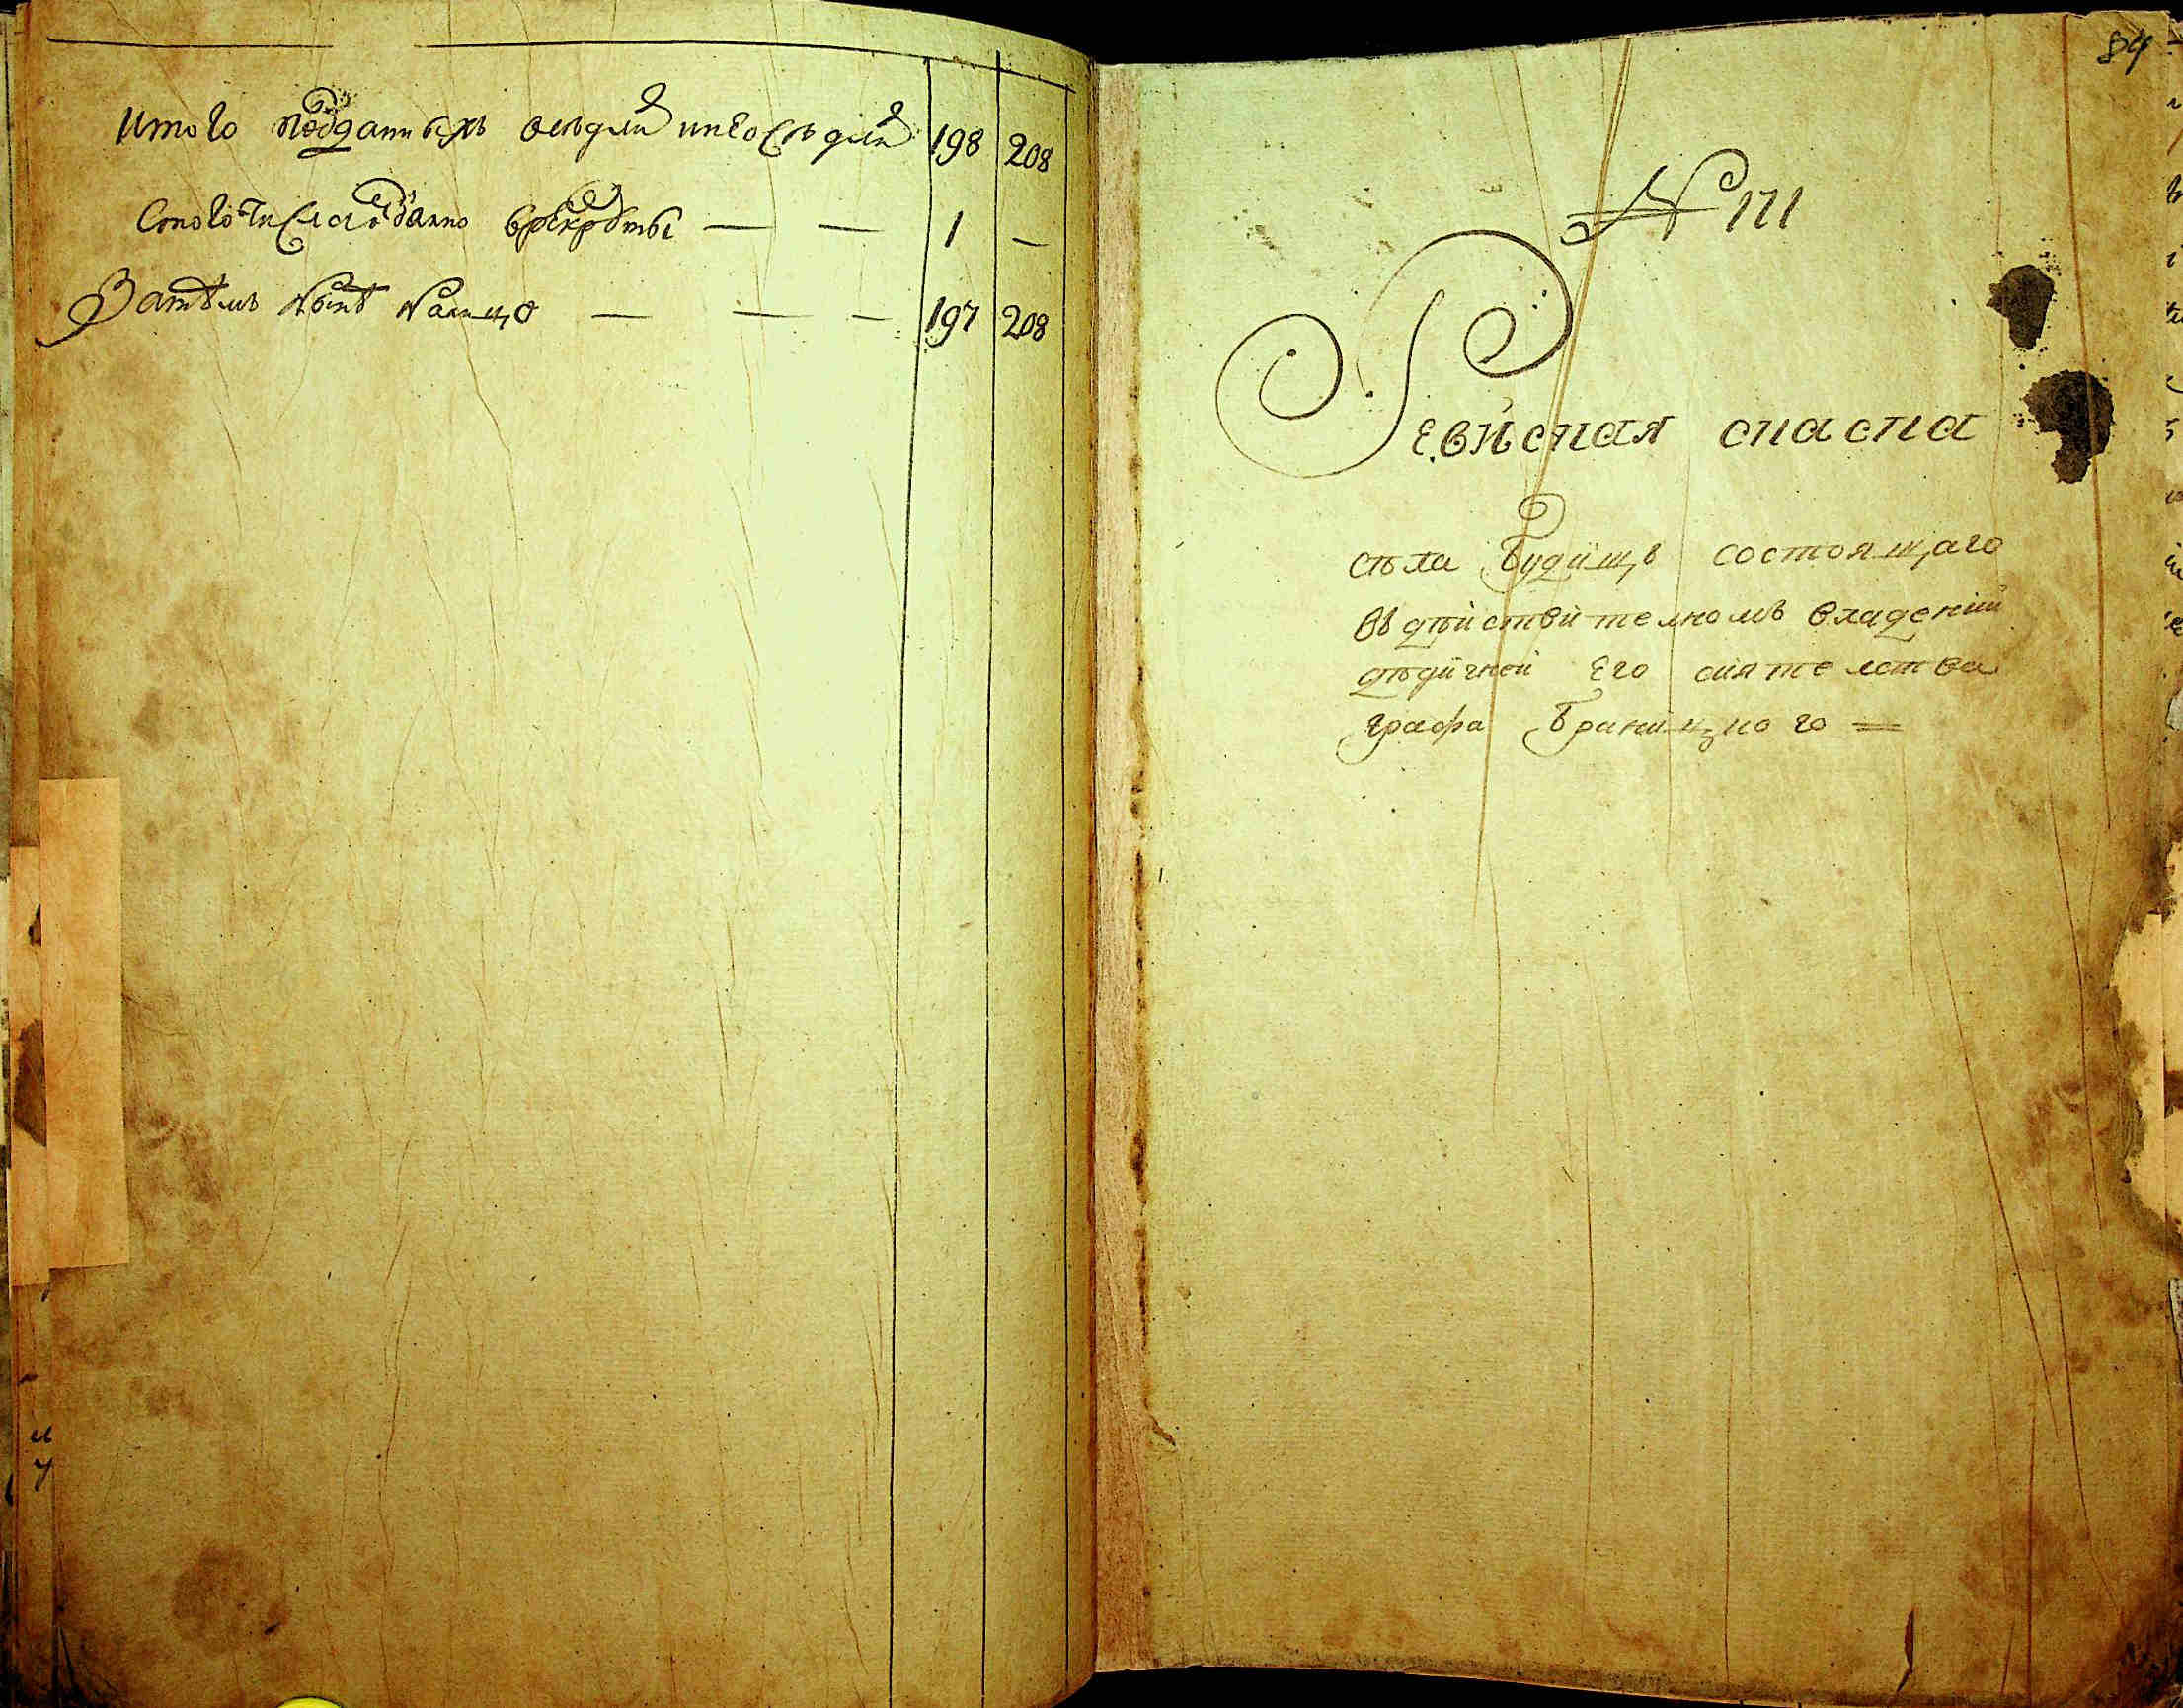 Итого подданныхъ оседлихъ инеоседлихъ 198 208
Стого числа отдано врекруты — — 1 —
Затѣмъ нынѣ налицо — — — 197 208
84
№ 171
Ревиская скаска
сѣла Будищъ состоящаго
въ дѣйствителномъ владении
дѣдичной Его сиятелства
графа Браницкого =